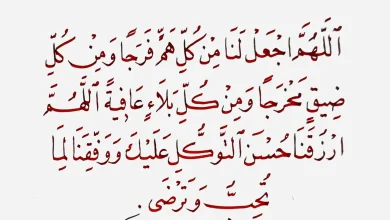 اَللَّهُمَّ اجْعَلْ لَنَا مِنْ كُلِّ هَمٍّ فَرَجًا وَمِنْ كُلِّ
ضِيقٍ مَخْرَجًا وَمِنْ كُلِّ بَلَاءٍ عَافِيَةً اَللَّهُمَّ
ارْزُقْنَا حُسْنَ التَّوَكُّلِ عَلَيْكَ وَوَفِّقْنَا لِمَا
تُحِبُّ وَتَرْضَى .